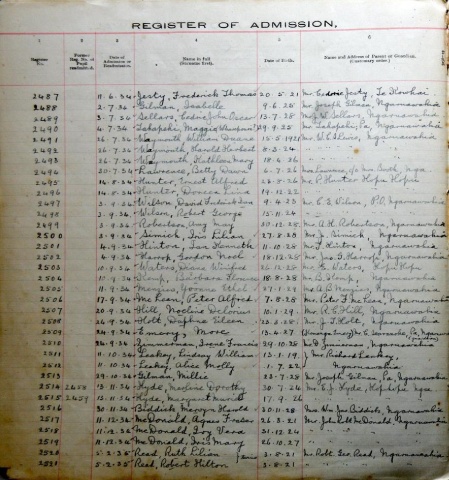 REGISTER OF ADMISSION.
1 2 3 4 5 6
Register No. Former Reg. No. of Pupil readmitted. Date of Admission or Readmission. Name in full (Surname first). Date of Birth. Name and Address of Parent or Guardian.
2487 11.6.34 Jesty, Frederick Thomas 20.5.21 Mr Cedric Jesty, Te Kowhai
2488 2.7.34 Gilman, Isabelle 9.6.28 Mr Joseph Ngaruawahia
2489 3.7.34 Sellars, Cedric John Oscar 13.7.28 Sellars, Ngaruawahia
2490 4.7.34 Takapeki, Maggie 29.9.25 Mr Takapeki, Pa, Ngaruawahia
2491 26.7.34 Waymouth, William Duncan 15.5.1921 Ngaruawahia
2492 26.7.34 Waymouth, Harold Herbert 8.3.24
2493 26.7.34 Waymouth, Kathleen Mary 18.4.26
2494 30.7.34 Lawrence, Betty Dawn 26.7.25 Ngaruawahia
2495 14.8.34 Hunter, Ernest Alfred Mr P. Hunter Hopu Hopu
2496 14.8.34 Hunter, 19.12.22
2497 3.9.34 Wilson, David Frederick Ivan 9.4.23 Mr C. G. Wilson, P.O. Ngaruawahia
2498 3.9.34 Wilson, Robert George 15.11.24
2499 3.9.34 Robertson, Amy May 30.12.28 Mr A. H. Robertson, Ngaruawahia
2500 3.9.34 27.8.20 Ngaruawahia
2501 4.9.34 Hinton, Ian Kenneth 11.10.28 Mr F. Hinton, Ngaruawahia
2502 4.9.34 Harrop, Gordon Noel 18.12.28 Mr Jas. F. Harrop, Ngaruawahia
2503 10.9.34 Waters, Winifred 26.12.28 Mr G. Waters, Hopu Hopu
2504 10.9.34 Kemp, Barbara Florence 18.8.28 Mr Kemp, Ngaruawahia
2505 11.9.34 Menzies, Yvonne Ethel 27.1.29 Mr A. B. Menzies, Ngaruawahia
2506 17.9.34 McKean, Peter Alfred 7.8.28 Mr Peter F. McKean, Ngaruawahia
2507 20.9.34 Hill, Noeline Delorus 10.1.29 Mr A. E. Hill, Ngaruawahia
2508 26.9.34 Holt, Daphne Eileen 23.2.28 Mr J. T. Holt, Ngaruawahia
2509 24.9.34 Emery, More 15.4.27 Ngaruawahia
2510 24.9.34 Zimmerman, Irene Francis 29.10.28 Mr D. Zimmerman, Ngaruawahia
2511 11.10.34 Leakey, Lindsay William 13.1.19 Mr Richard Leakey,
2512 11.10.34 Leakey, Alice Molly 1.7.22 Ngaruawahia
2513 29.10.34 Gilman, Millie 23.7.29 Mr Joseph Gilman, Pa, Ngaruawahia
2514 2458 13.11.34 Hyde, Madeline Dorothy 30.7.24 Mr E. J. Hyde, Hopuhopu
2515 2459 13.11.34 Hyde, Margaret Muriel 17.9.26
2516 30.11.34 Biddick, Mervyn Harold 30.11.28 Mr Wm Jas Biddick, Ngaruawahia
2517 11.12.34 McDonald, Agnes Fraser 26.3.21 Mr John Robt McDonald, Ngaruawahia
2518 11.12.34 McDonald, Joy Vera 31.12.24
2519 11.12.34 McDonald, Iris Mary 26.10.27
2520 5.2.35 Read, Ruth Lilian } twins 3.8.21 Mr Robt. Geo. Read, Ngaruawahia
2521 5.2.35 Read, Robert Hilton 3.8.21